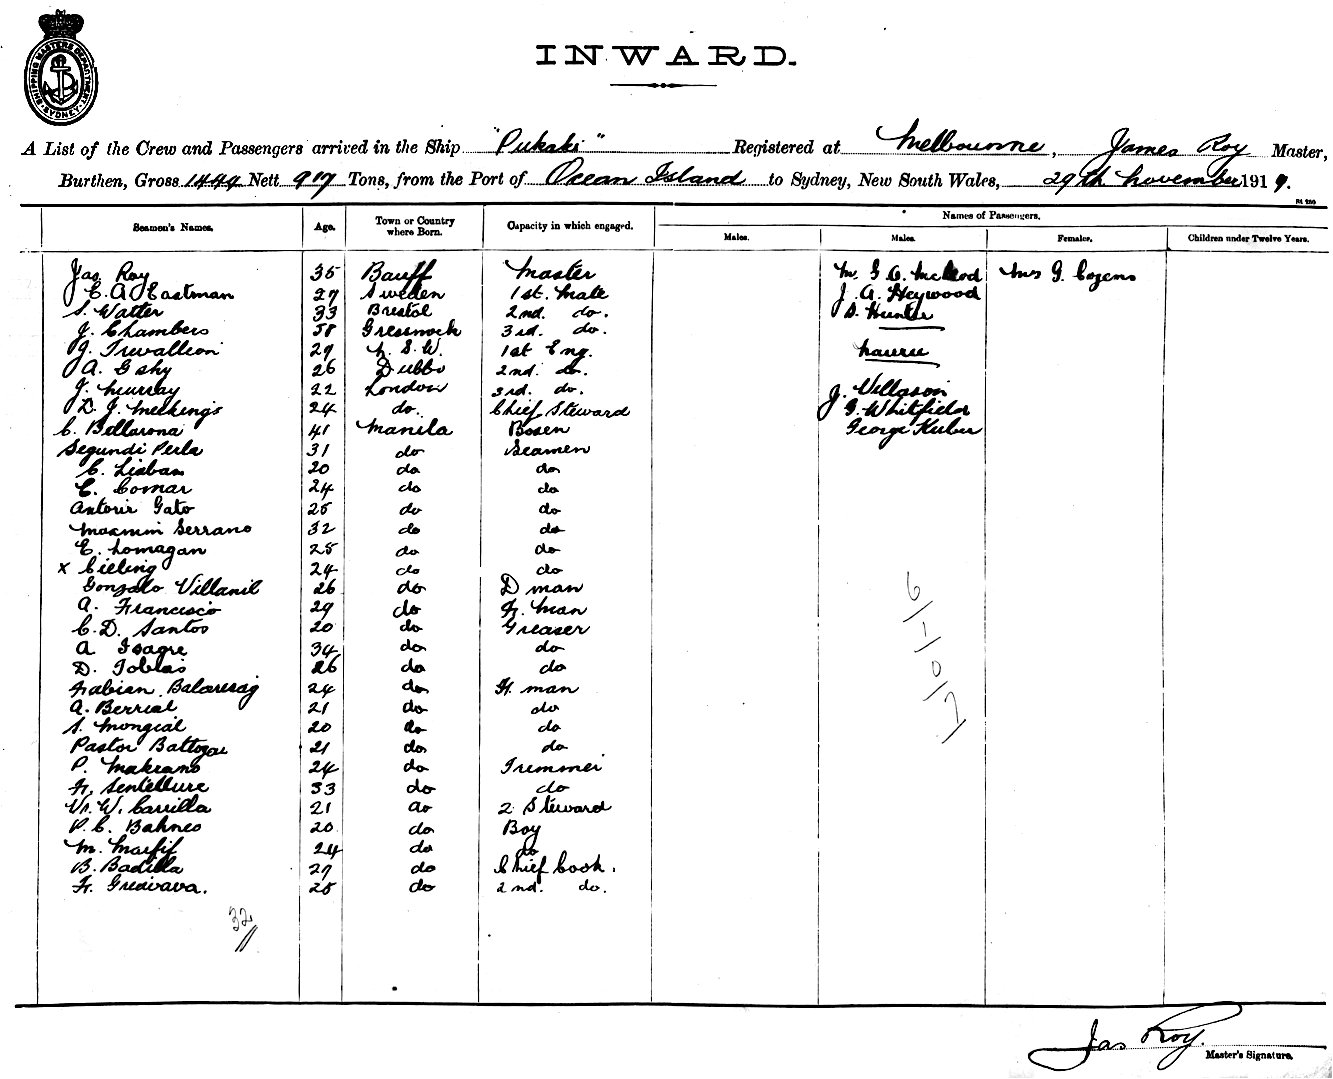 SHIPPING MASTERS DEPARTMENT SYDNEY
INWARD.
A List of the Crew and Passengers arrived in the Ship "Pukaki" Registered at Melbourne, James Roy Master,
Burthen, Gross 1444 Nett 917 Tons, from the Port of Ocean Island to Sydney, New South Wales, 29th November 1919.
Seamen's Names. Age. Town or Country where Born. Capacity in which engaged. Names of Passengers.
Males. Males. Females. Children under Twelve Years.
Jas Roy 35 Banff Master Mr G. A. McLeod Mrs G. Cozens
C. A. Eastman 27 Sweden 1st. Mate J. A. Heywood
S. Watter 33 Bristol 2nd. do. D. Hunter
J. Chambers 58 Greenock 3rd. do.
J. Trevallion 29 N. S. W. 1st Eng. Nauru
A. Gahy 26 Dubbo 2nd. do.
J. Murray 22 London 3rd. do. J. Willgson
D. J. Melkings 24 do. Chief Steward G. Whitfield
C. Bellarona 41 Manila Bosen George Kuber
Segundi Perla 31 do Seamen
C. Liaban 20 do do
C. Comar 24 do do
Antonir Gato 25 do do
Maxmin Serrano 32 do do
E. Lomagan 25 do do
x Cieling 24 do do
Gonzalo Villanil 26 do D man
A. Francisco 29 do Fr. man
C. D. Santos 20 do Greaser
A Isagre 34 do do
D. Tobias 26 do do
Fabian 24 do Fr. man
A. Berrial 21 do do
S. Mongial 20 do do
Pastor 21 do do
P. Makrano 24 do Trimmer
Fr. Sentellure 33 do do
W. Carrilla 21 do 2 Steward
P. C. Bahnes 20 do Boy
M. Marfif 24 do do
B. Badilla 27 do Chief Cook.
Fr. Gredvava. 25 do 2nd. do.
32
6/-/0/7
Jas Roy.
Master's Signature.